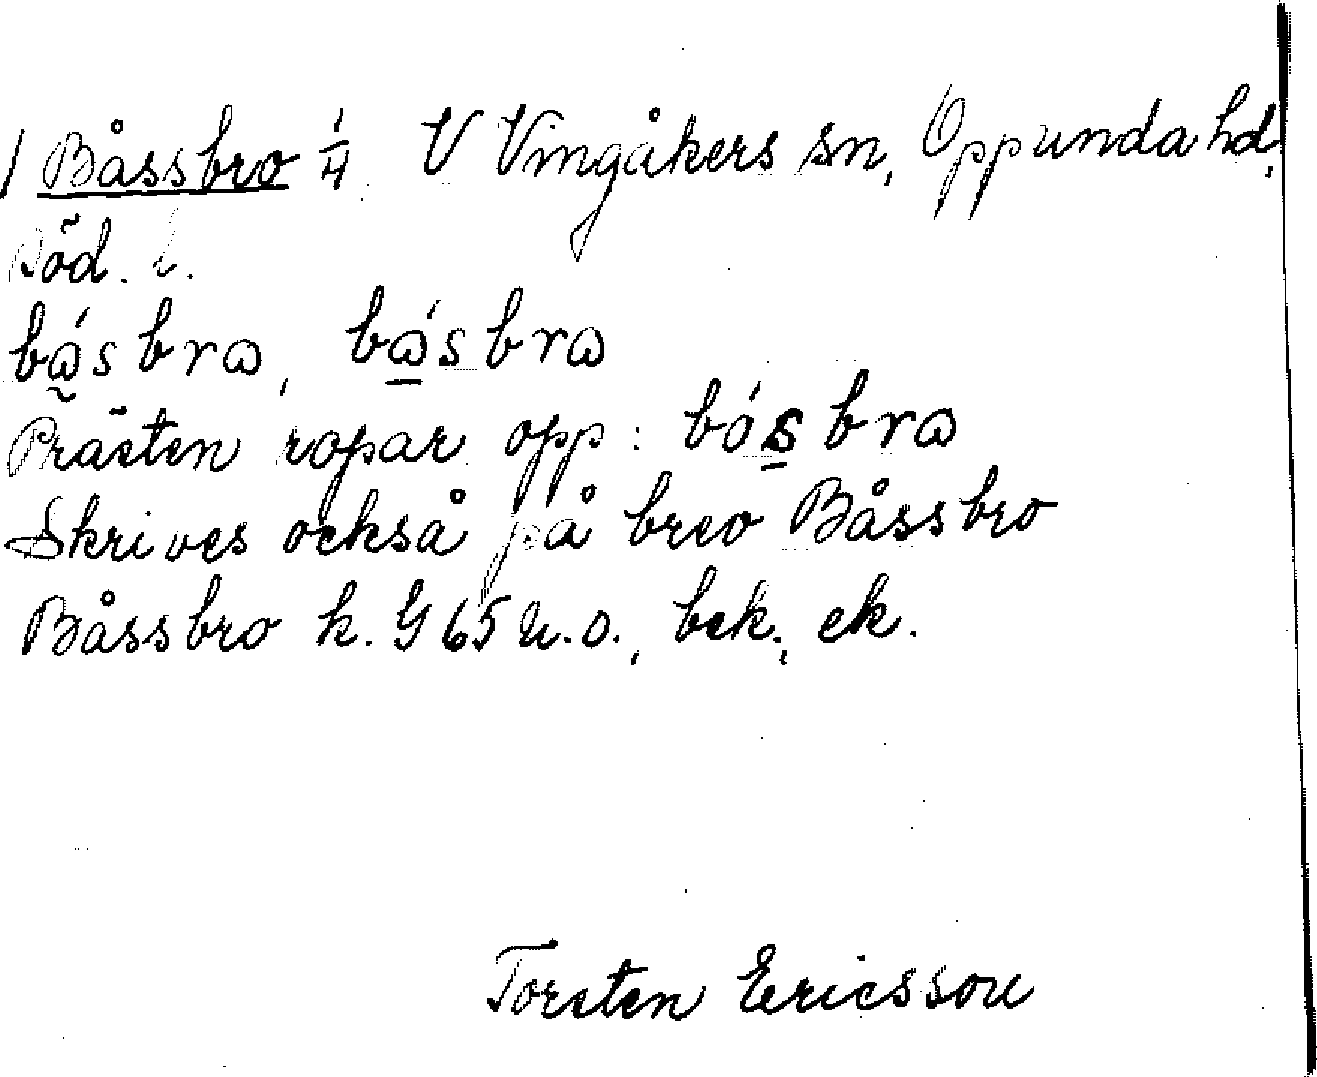 1 Båssbro 1/4 V Vingåkers sn, Oppunda hd,
Söd. l.
bǫ́sbrɷ, bɷ́sbrɷ
Prästen ropar opp: bósbrɷ
Skrives också på brev Båssbro
Båssbro k. G 65 u. o., bek., ek.
Torsten Ericsson